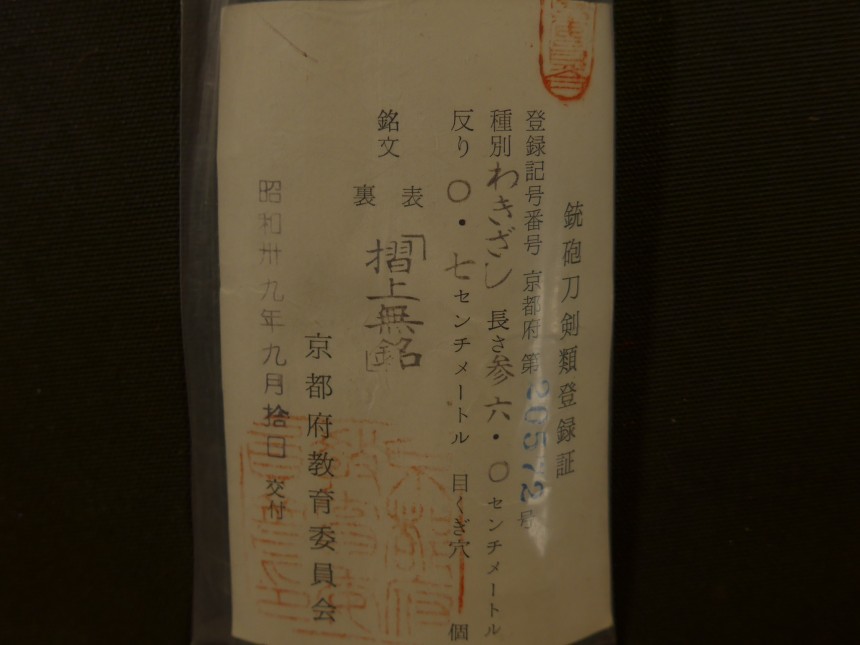 銃砲刀剣類登録証
登録記号番号 京都府 第20572号
種別わきざし 長さ参六・〇センチメートル
反り〇・七センチメートル 目くぎ穴 一個
銘文
表
裏
「摺上無銘」
京都府教育委員会
昭和卅九年九月拾日 交付